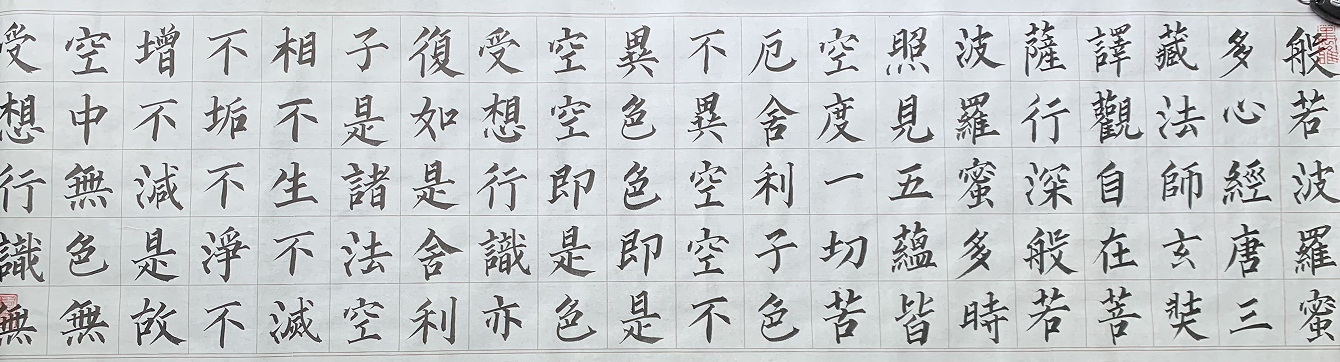 般若波羅蜜
多心經唐三
藏法師玄奘
譯觀自在菩
薩行深般若
波羅蜜多時
照見五蘊皆
空度一切苦
厄舍利子色
不異空空不
異色色即是
空空即是色
受想行識亦
復如是舍利
子是諸法空
相不生不滅
不垢不淨不
增不減是故
空中無色無
受想行識無